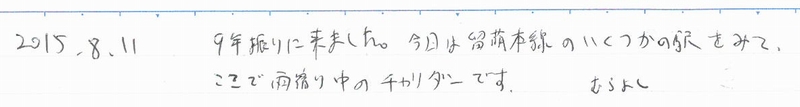 2015.8.11 9年振りに来ました。今日は留萌本線のいくつかの駅をみて、
ここで雨宿り中のチャリダーです. むらよし